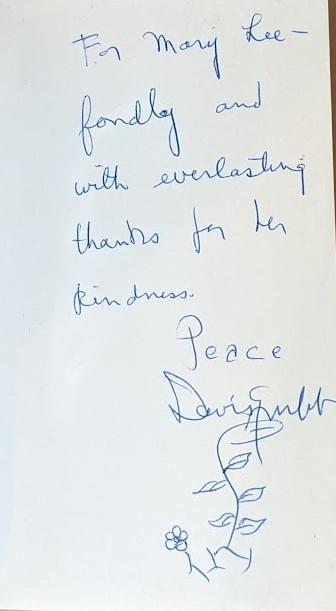 For Mary Lee –
fondly and
with everlasting
thanks for her
kindness.
Peace
Davis Grubb